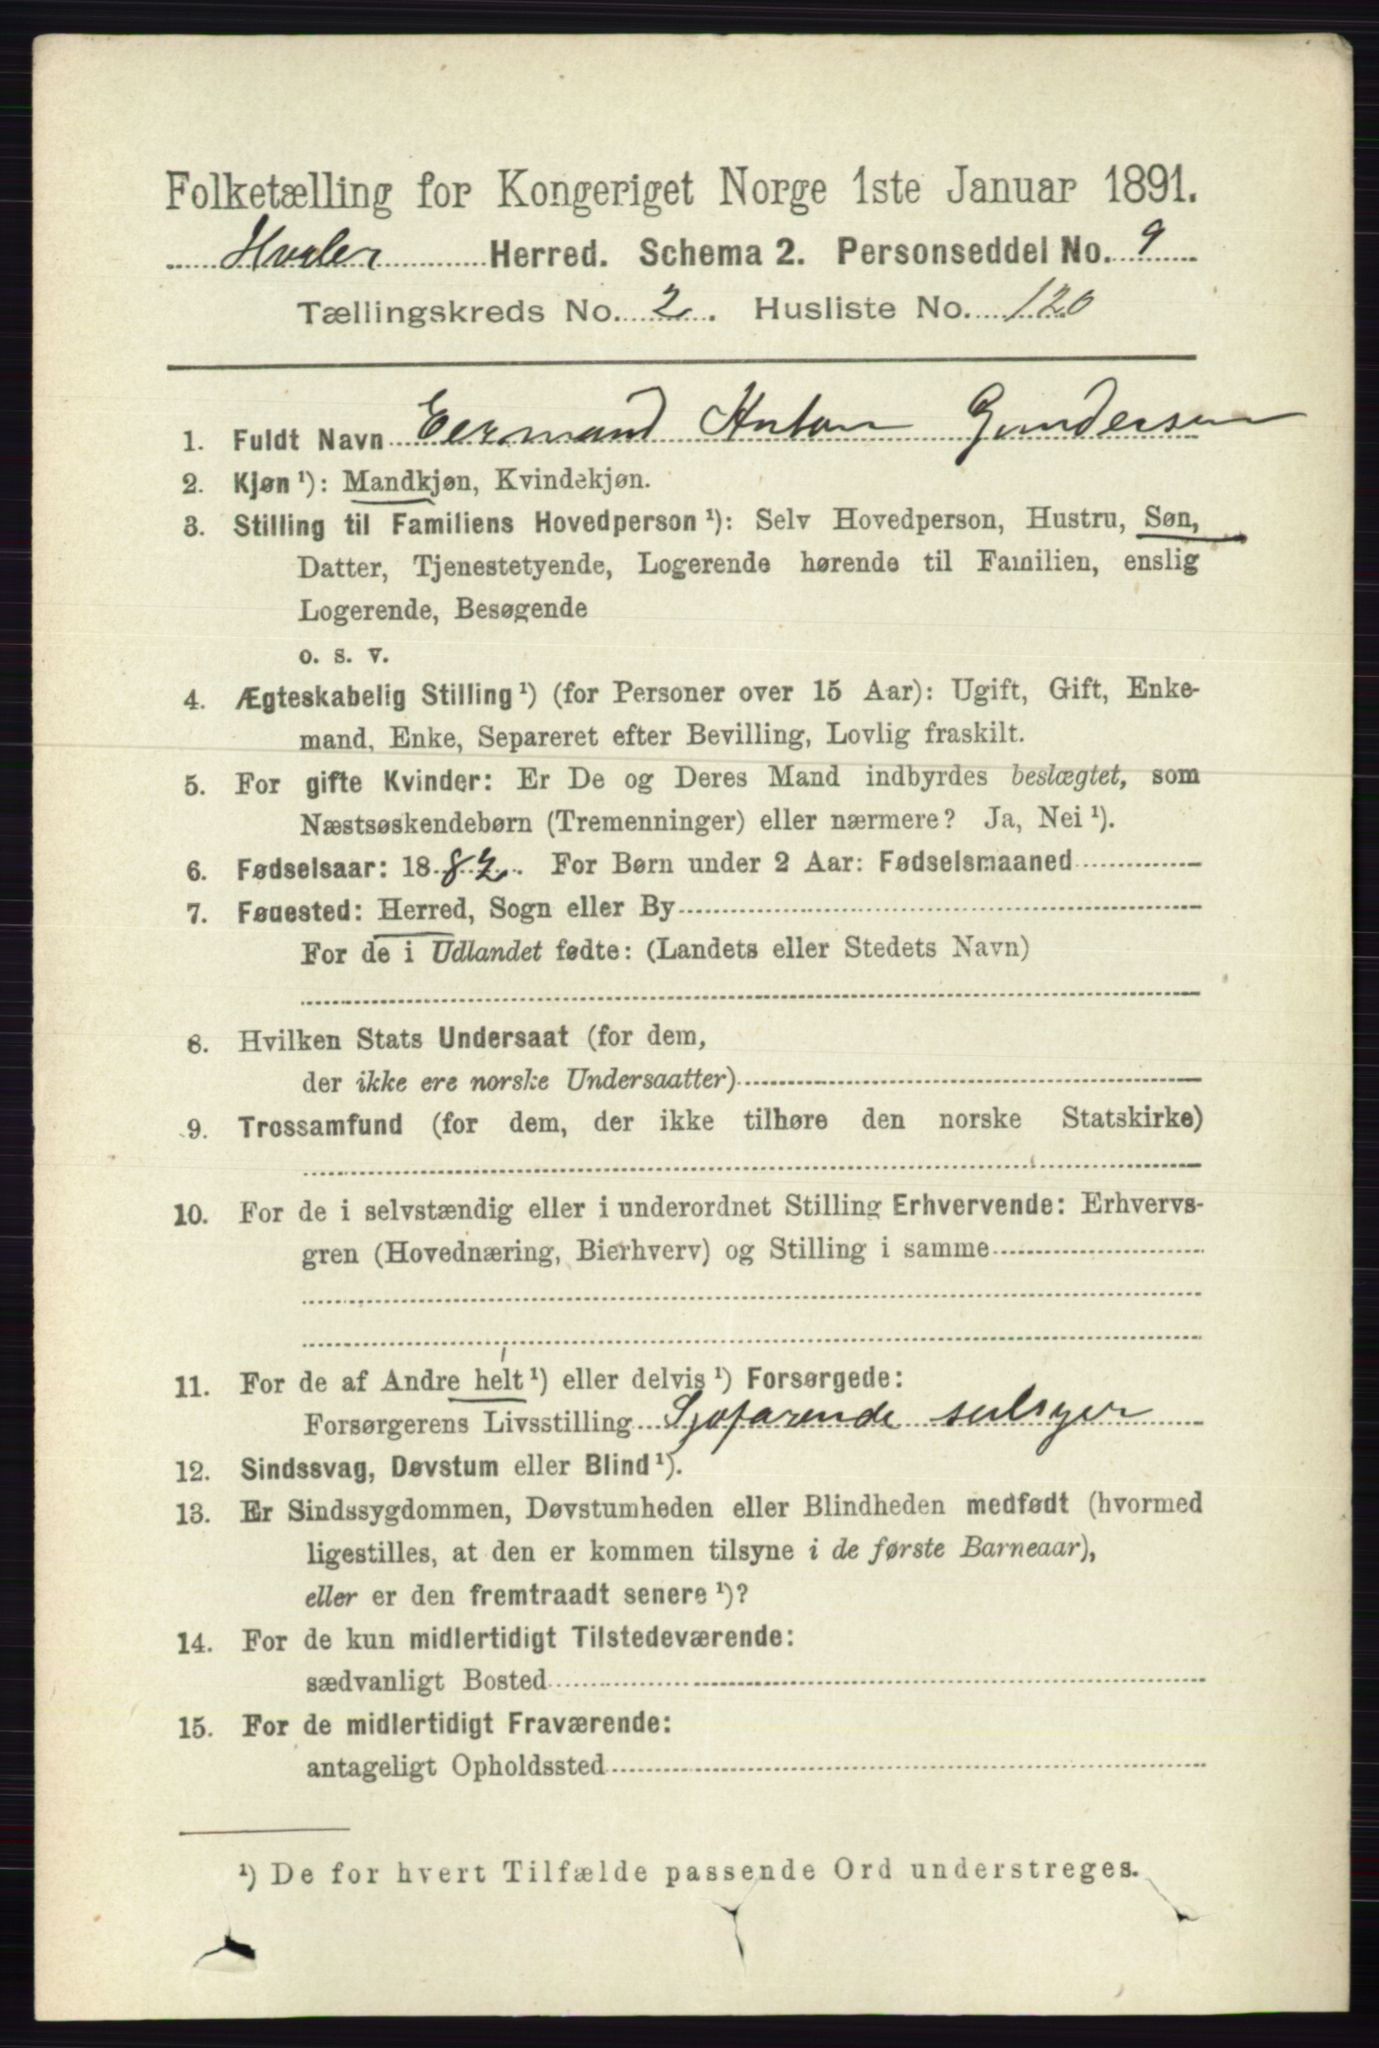 Folketælling for Kongeriget Norge 1ste Januar 1891.
Hvaler Herred. Schema 2. Personseddel No. 9
Tællingskreds No. 2. Husliste No. 120
1. Fuldt Navn Eermand Anton Gundersen
2. Kjøn ¹): Mandkjøn, Kvindekjøn.
3. Stilling til Familiens Hovedperson ¹): Selv Hovedperson, Hustru, Søn,
Datter, Tjenestetyende, Logerende hørende til Familien, enslig
Logerende, Besøgende
o. s. v.
4. Ægteskabelig Stilling ¹) (for Personer over 15 Aar): Ugift, Gift, Enke-
mand, Enke, Separeret efter Bevilling, Lovlig fraskilt.
5. For gifte Kvinder: Er De og Deres Mand indbyrdes beslægtet, som
Næstsøskendebørn (Tremenninger) eller nærmere? Ja, Nei ¹).
6. Fødselsaar: 1882. For Børn under 2 Aar: Fødselsmaaned
7. Fødested: Herred, Sogn eller By
For de i Udlandet fødte: (Landets eller Stedets Navn)
8. Hvilken Stats Undersaat (for dem,
der ikke ere norske Undersaatter)
9. Trossamfund (for dem, der ikke tilhøre den norske Statskirke)
10. For de i selvstændig eller i underordnet Stilling Erhvervende: Erhvervs-
gren (Hovednæring, Bierhverv) og Stilling i samme
11. For de af Andre helt ¹) eller delvis ¹) Forsørgede:
Forsørgerens Livsstilling Sjøfarende
12. Sindssvag, Døvstum eller Blind ¹).
13. Er Sindssygdommen, Døvstumheden eller Blindheden medfødt (hvormed
ligestilles, at den er kommen tilsyne i de første Barneaar),
eller er den fremtraadt senere ¹)?
14. For de kun midlertidigt Tilstedeværende:
sædvanligt Bosted
15. For de midlertidigt Fraværende:
antageligt Opholdssted
¹) De for hvert Tilfælde passende Ord understreges.